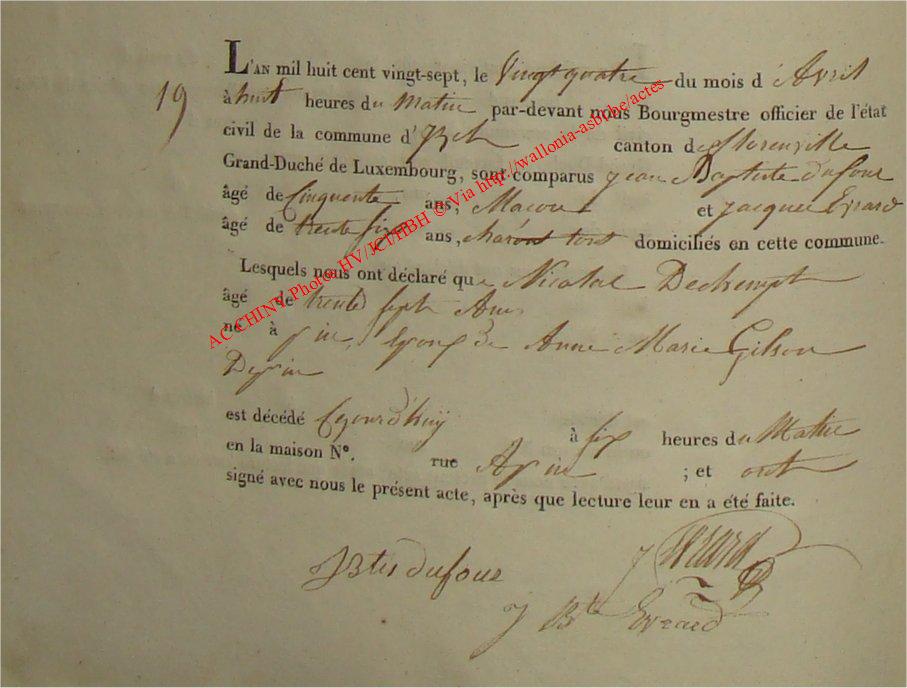 L'AN mil huit cent vingt-sept, le Vingt quatre du mois d'Avril
19
à huit heures du Matin par-devant nous Bourgmestre officier de l'état
civil de la commune d'Izel canton de florenville
Grand-Duché de Luxembourg, sont comparus jean Baptiste dufour
âgé de Cinquente ans, Macon et jacques Evrard
âgé de trente six ans, charon tout domiciliés en cette commune.
Lesquels nous ont déclaré que Nicolas Dechempt
âgé de trente sept Ans
né à pin, Epoux de Anne Marie Gilson
De pin
est décédé Cejourd'huy à six heures du Matin
en la maison N°. rue A pin ; et ont
signé avec nous le présent acte, après que lecture leur en a été faite.
JBtes dufour J Evrard
J Bte Evrard
AC CHINY Photos HV/JCT/HBH © Via http://wallonia-asbl.be/actes